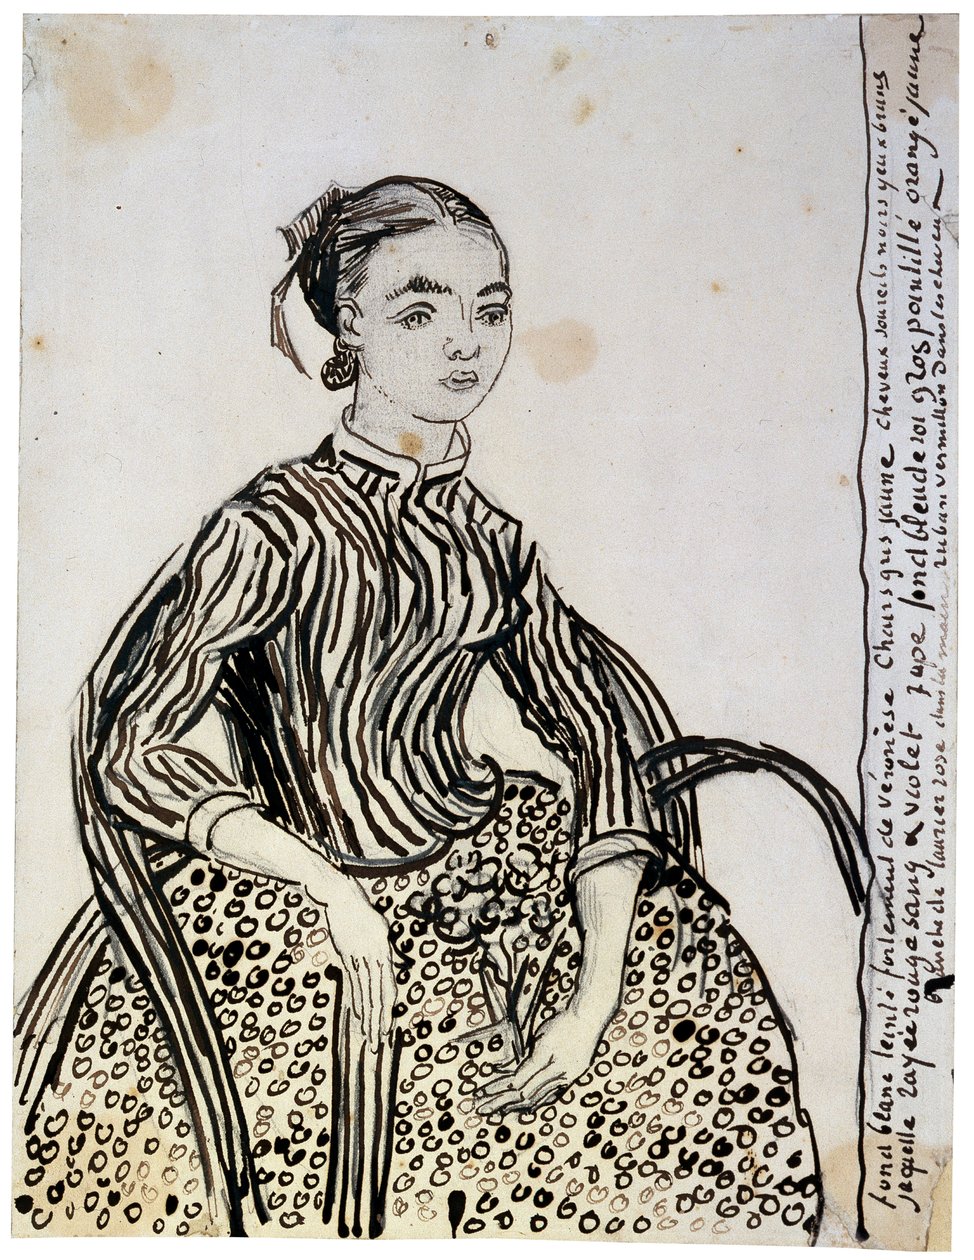 fond blanc teinté fortement de véronèse Chairs gris jaune cheveux sourcils noirs yeux bruns
jaquette rayée rouge sang & violet jupe fond bleu de roi gros pointillé orangé jaune
branche de laurier rose dans la main ruban vermillon dans les cheveux